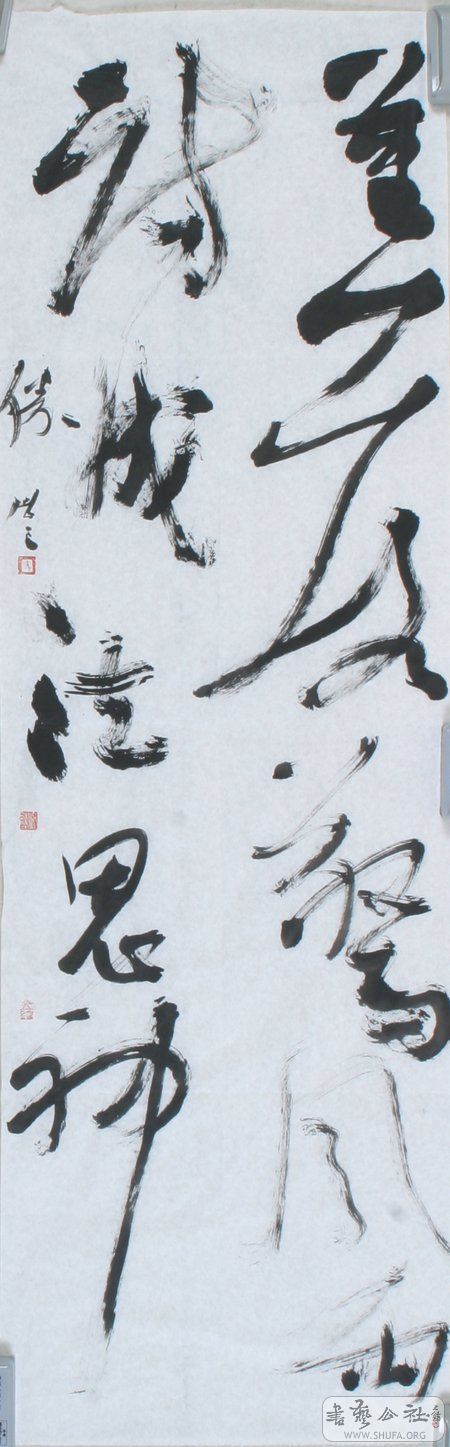 筆落驚風雨
詩成泣鬼神
書藝公社
WWW.SHUFA.ORG